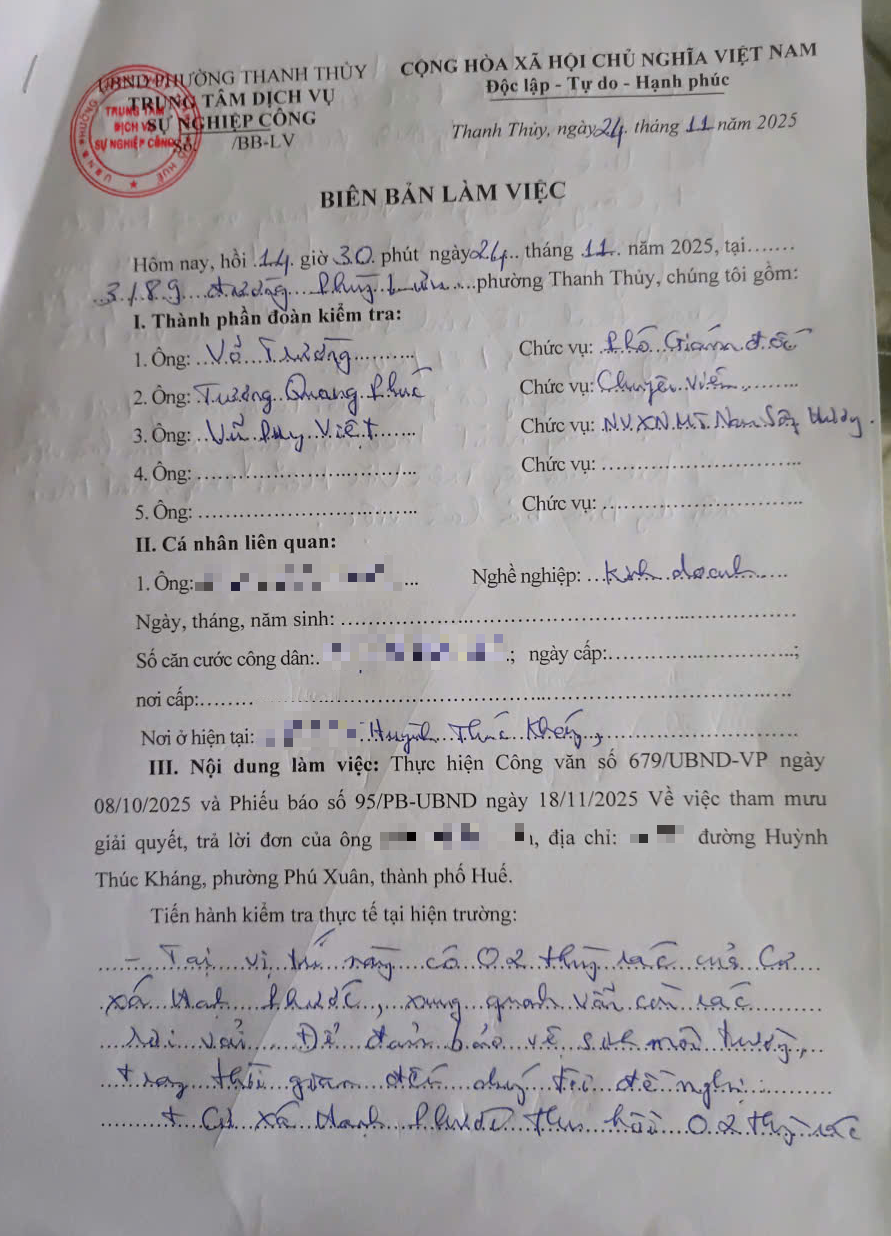 UBND PHƯỜNG THANH THỦY
TRUNG TÂM DỊCH VỤ
SỰ NGHIỆP CÔNG
Số: /BB-LV
TRUNG TÂM
DỊCH VỤ
SỰ NGHIỆP CÔNG
CỘNG HÒA XÃ HỘI CHỦ NGHĨA VIỆT NAM
Độc lập - Tự do - Hạnh phúc
Thanh Thủy, ngày 24 tháng 11 năm 2025
BIÊN BẢN LÀM VIỆC
Hôm nay, hồi 14 giờ 30 phút ngày 24 tháng 11 năm 2025, tại.......
3/89 đường Phùng Lưu phường Thanh Thủy, chúng tôi gồm:
I. Thành phần đoàn kiểm tra:
1. Ông: Võ Trường Chức vụ: Phó Giám đốc
2. Ông: Trương Quang Phúc Chức vụ: Chuyên viên
3. Ông: Vũ Huy Việt Chức vụ: NV.XN.MT. Nam Sông Hương.
4. Ông: .......... Chức vụ: ..........
5. Ông: .......... Chức vụ: ..........
II. Cá nhân liên quan:
1. Ông: Nghề nghiệp: Kinh doanh
Ngày, tháng, năm sinh: ..........
Số căn cước công dân: ; ngày cấp:..........;
nơi cấp:..........
Nơi ở hiện tại: Huỳnh Thúc Kháng,
III. Nội dung làm việc: Thực hiện Công văn số 679/UBND-VP ngày
08/10/2025 và Phiếu báo số 95/PB-UBND ngày 18/11/2025 Về việc tham mưu
giải quyết, trả lời đơn của ông , địa chỉ: đường Huỳnh
Thúc Kháng, phường Phú Xuân, thành phố Huế.
Tiến hành kiểm tra thực tế tại hiện trường:
- Tại vị trí này có 02 thùng rác của Cư
xá Hạnh Phước, xung quanh vẫn còn rác
rơi vãi. Để đảm bảo vệ sinh môi trường,
trong thời gian đến chúng tôi đề nghị:
+ Cư xá Hạnh Phước thu hồi 02 thùng rác